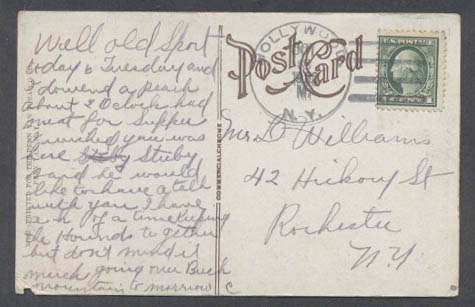 Well old Sport
today is Tuesday and
downed a peach
about 2 Oclock had
meat for Supper
wished you was
here Stuby
said he would
like to have a talk
with you I have
a h of a time keeping
the Hounds to gether
but don't mind it
much going over Buck
mountain to morrow
Post Card
OLLYWOOD
N.Y.
U.S. POSTAGE
1 CENT 1
COMMERCIALCHROME
Mr L Williams
42 Hickory St
Rochester
N.Y.
C